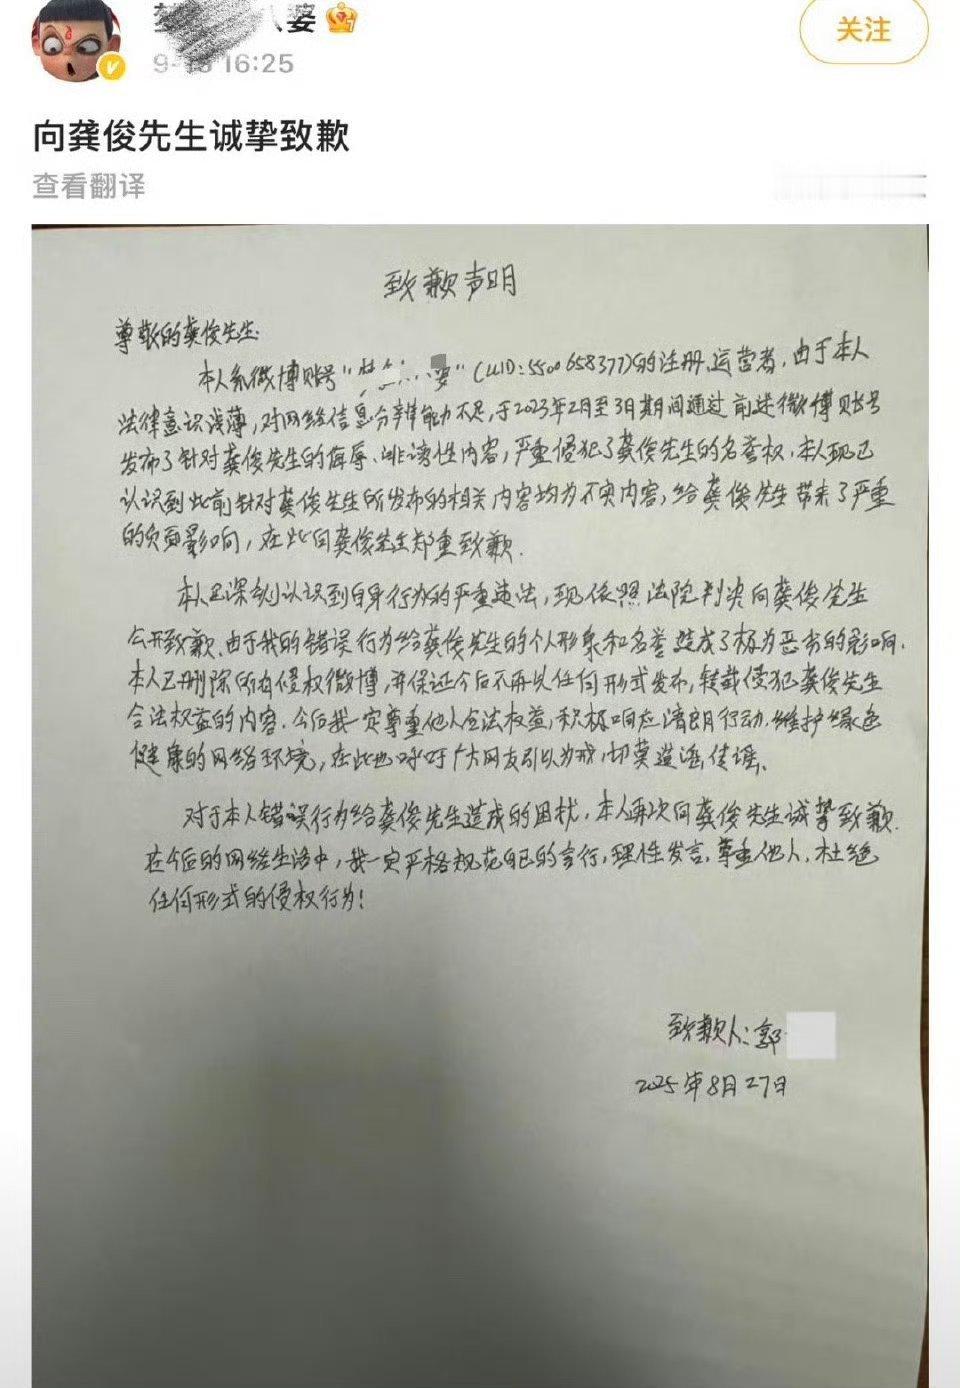 婆
16:25
关注
向龚俊先生诚挚致歉
查看翻译
致歉声明
尊敬的龚俊先生:
本人系微博账号“婆”(UID:5500658377)的注册、运营者,由于本人
法律意识浅薄,对网络信息分辨能力不足,于2023年2月至3月期间通过前述微博账号
发布了针对龚俊先生的侮辱、诽谤性内容,严重侵犯了龚俊先生的名誉权,本人现已
认识到此前针对龚俊先生所发布的相关内容均为不实内容,给龚俊先生带来了严重
的负面影响,在此向龚俊先生郑重致歉.
本人已深刻认识到自身行为的严重违法,现依照法院判决向龚俊先生
公开致歉.由于我的错误行为给龚俊先生的个人形象和名誉造成了极为恶劣的影响.
本人已删除所有侵权微博,并保证今后不再以任何形式发布,转载侵犯龚俊先生
合法权益的内容.今后我一定尊重他人合法权益,积极响应清朗行动,维护绿色
健康的网络环境,在此也呼吁广大网友引以为戒,切莫造谣、传谣、
对于本人错误行为给龚俊先生造成的困扰,本人再次向龚俊先生诚挚致歉.
在今后的网络生活中,我一定严格规范自己的言行,理性发言,尊重他人,杜绝
任何形式的侵权行为!
致歉人:郭
2025年8月27日